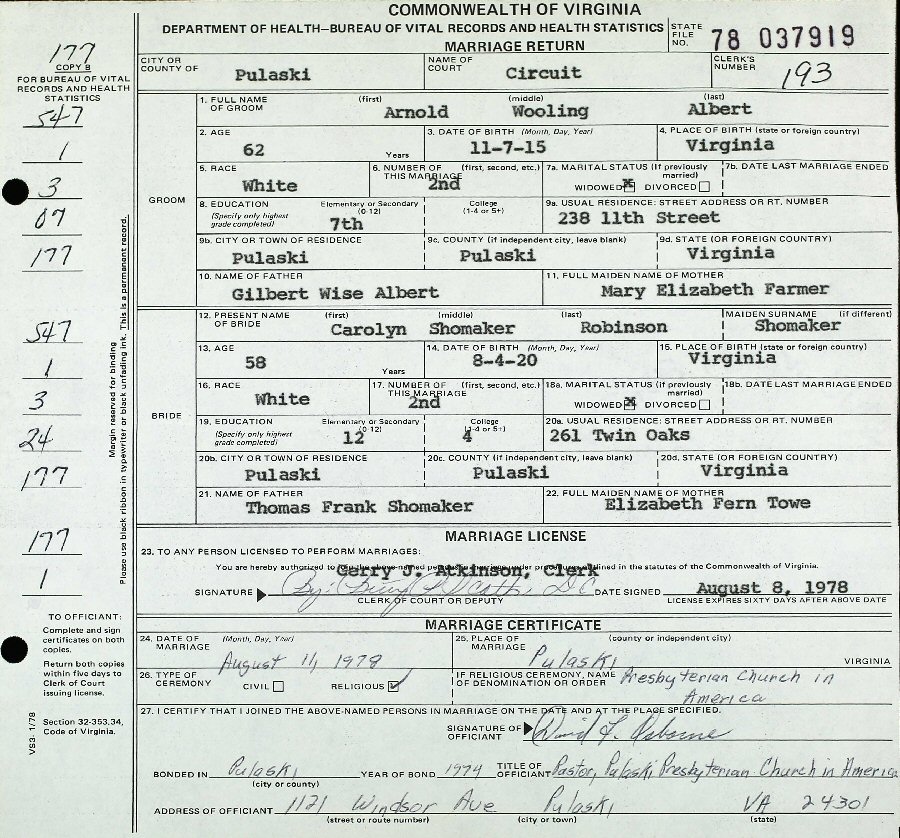 COMMONWEALTH OF VIRGINIA
DEPARTMENT OF HEALTH—BUREAU OF VITAL RECORDS AND HEALTH STATISTICS
MARRIAGE RETURN
STATE FILE NO. 78 037919
177
COPY B
FOR BUREAU OF VITAL RECORDS AND HEALTH STATISTICS
547
1
3
07
177
547
1
3
24
177
177
1
Margin reserved for binding
Please use black ribbon in typewriter or black unfading ink. This is a permanent record.
TO OFFICIAL:
Complete and sign certificates on both copies.
Return both copies within five days to Clerk of Court issuing license.
Section 32-353.34, Code of Virginia.
VS3. 1/78
CITY OR COUNTY OF Pulaski NAME OF COURT Circuit CLERK'S NUMBER 193
GROOM
1. FULL NAME OF GROOM (first) Arnold (middle) Wooling (last) Albert
2. AGE 62 Years 3. DATE OF BIRTH (Month, Day, Year) 11-7-15 4. PLACE OF BIRTH (state or foreign country) Virginia
5. RACE White 6. NUMBER OF THIS MARRIAGE (first, second, etc.) 2nd 7a. MARITAL STATUS (If previously married) WIDOWED X DIVORCED 7b. DATE LAST MARRIAGE ENDED
8. EDUCATION (Specify only highest grade completed) Elementary or Secondary (0-12) 7th College (1-4 or 5+) 9a. USUAL RESIDENCE: STREET ADDRESS OR RT. NUMBER 238 11th Street
9b. CITY OR TOWN OF RESIDENCE Pulaski 9c. COUNTY (if independent city, leave blank) Pulaski 9d. STATE (OR FOREIGN COUNTRY) Virginia
10. NAME OF FATHER Gilbert Wise Albert 11. FULL MAIDEN NAME OF MOTHER Mary Elizabeth Farmer
BRIDE
12. PRESENT NAME OF BRIDE (first) Carolyn (middle) Shomaker (last) Robinson MAIDEN SURNAME (if different) Shomaker
13. AGE 58 Years 14. DATE OF BIRTH (Month, Day, Year) 8-4-20 15. PLACE OF BIRTH (state or foreign country) Virginia
16. RACE White 17. NUMBER OF THIS MARRIAGE (first, second, etc.) 2nd 18a. MARITAL STATUS (If previously married) WIDOWED X DIVORCED 18b. DATE LAST MARRIAGE ENDED
19. EDUCATION (Specify only highest grade completed) Elementary or Secondary (0-12) 12 College (1-4 or 5+) 4 20a. USUAL RESIDENCE: STREET ADDRESS OR RT. NUMBER 261 Twin Oaks
20b. CITY OR TOWN OF RESIDENCE Pulaski 20c. COUNTY (if independent city, leave blank) Pulaski 20d. STATE (OR FOREIGN COUNTRY) Virginia
21. NAME OF FATHER Thomas Frank Shomaker 22. FULL MAIDEN NAME OF MOTHER Elizabeth Fern Towe
MARRIAGE LICENSE
23. TO ANY PERSON LICENSED TO PERFORM MARRIAGES:
You are hereby authorized to join the above-named persons in marriage under procedures outlined in the statutes of the Commonwealth of Virginia.
Gerry J. Atkinson, Clerk
SIGNATURE By: D C DATE SIGNED August 8, 1978
CLERK OF COURT OR DEPUTY LICENSE EXPIRES SIXTY DAYS AFTER ABOVE DATE
MARRIAGE CERTIFICATE
24. DATE OF MARRIAGE (Month, Day, Year) August 11, 1978 25. PLACE OF MARRIAGE (county or independent city) Pulaski VIRGINIA
26. TYPE OF CEREMONY CIVIL RELIGIOUS ✓ IF RELIGIOUS CEREMONY, NAME OF DENOMINATION OR ORDER Presbyterian Church in America
27. I CERTIFY THAT I JOINED THE ABOVE-NAMED PERSONS IN MARRIAGE ON THE DATE AND AT THE PLACE SPECIFIED.
SIGNATURE OF OFFICIANT David F. Osborne
BONDED IN Pulaski (city or county) YEAR OF BOND 1974 TITLE OF OFFICIANT Pastor, Pulaski Presbyterian Church in America
ADDRESS OF OFFICIANT 1121 Windsor Ave Pulaski VA 24301
(street or route number) (city or town) (state)